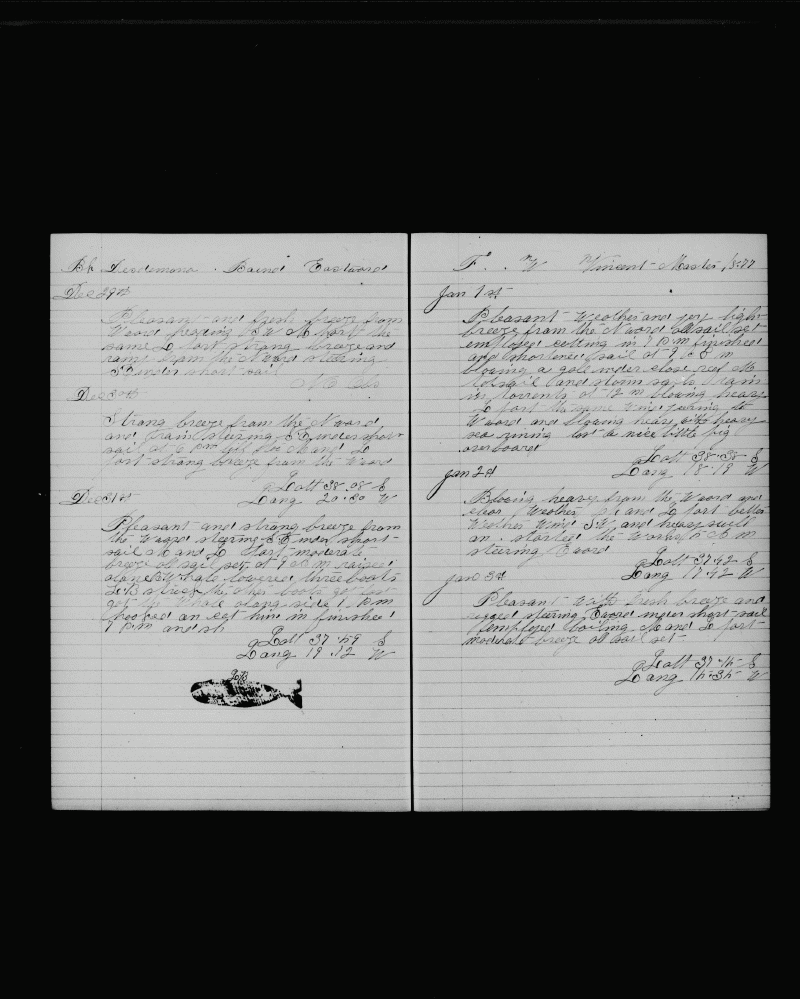 Bk Desdemona. Bound Eastward
Dec 29th
Pleasant and fresh breeze from
W ward heading M Part the
same L Part strong breeze and
rany from the N ward steering
under short sail
No Obs
Dec 30th
Strong breeze from the N ward
and steering S E under short
sail at 6 PM M and L
Part strong breeze from the W ward
Latt 38.08 S
Long 20.20 W
Dec 31st
Pleasant and strong breeze from
the W ward stearing S E under short
sail M and L Part moderate
breeze all sail set at 7 a m raised
Whale lowered three boats
L B struck the other boats got fast
got the Whale along side 1 P.m
hooked an cut him in finished
7 P.m and sh
Latt 37.49 S
Long 19.12 W
LB
F. W Vincent Master 1877
Jan 1st
Pleasant Weather and very light
breeze from the N ward all sail set
employed cutting in 7 P m finished
and shortened sail at 9 m
blowing a gale under close reef M
topsail and storm sails rain
in torrents at 12 m blowing heavy
L Part the same Wind to
W ward and blowing heavy with heavy
sea runing lost a nice little pig
overboard
Latt 38.38 S
Long 18.19 W
Jan 2d
Blowing heavy from the W ward and
clear Weather M and L Part better
Weather Wind S W and heavy swell
on. started the Works 5 A m
stearing E ward
Latt 37.42 S
Long 17.42 W
Jan 3d
Pleasant With fresh breeze and
rugged steering E ward under short sail
employed boiling M and L Part
moderate breeze all sail set
Latt S
Long W